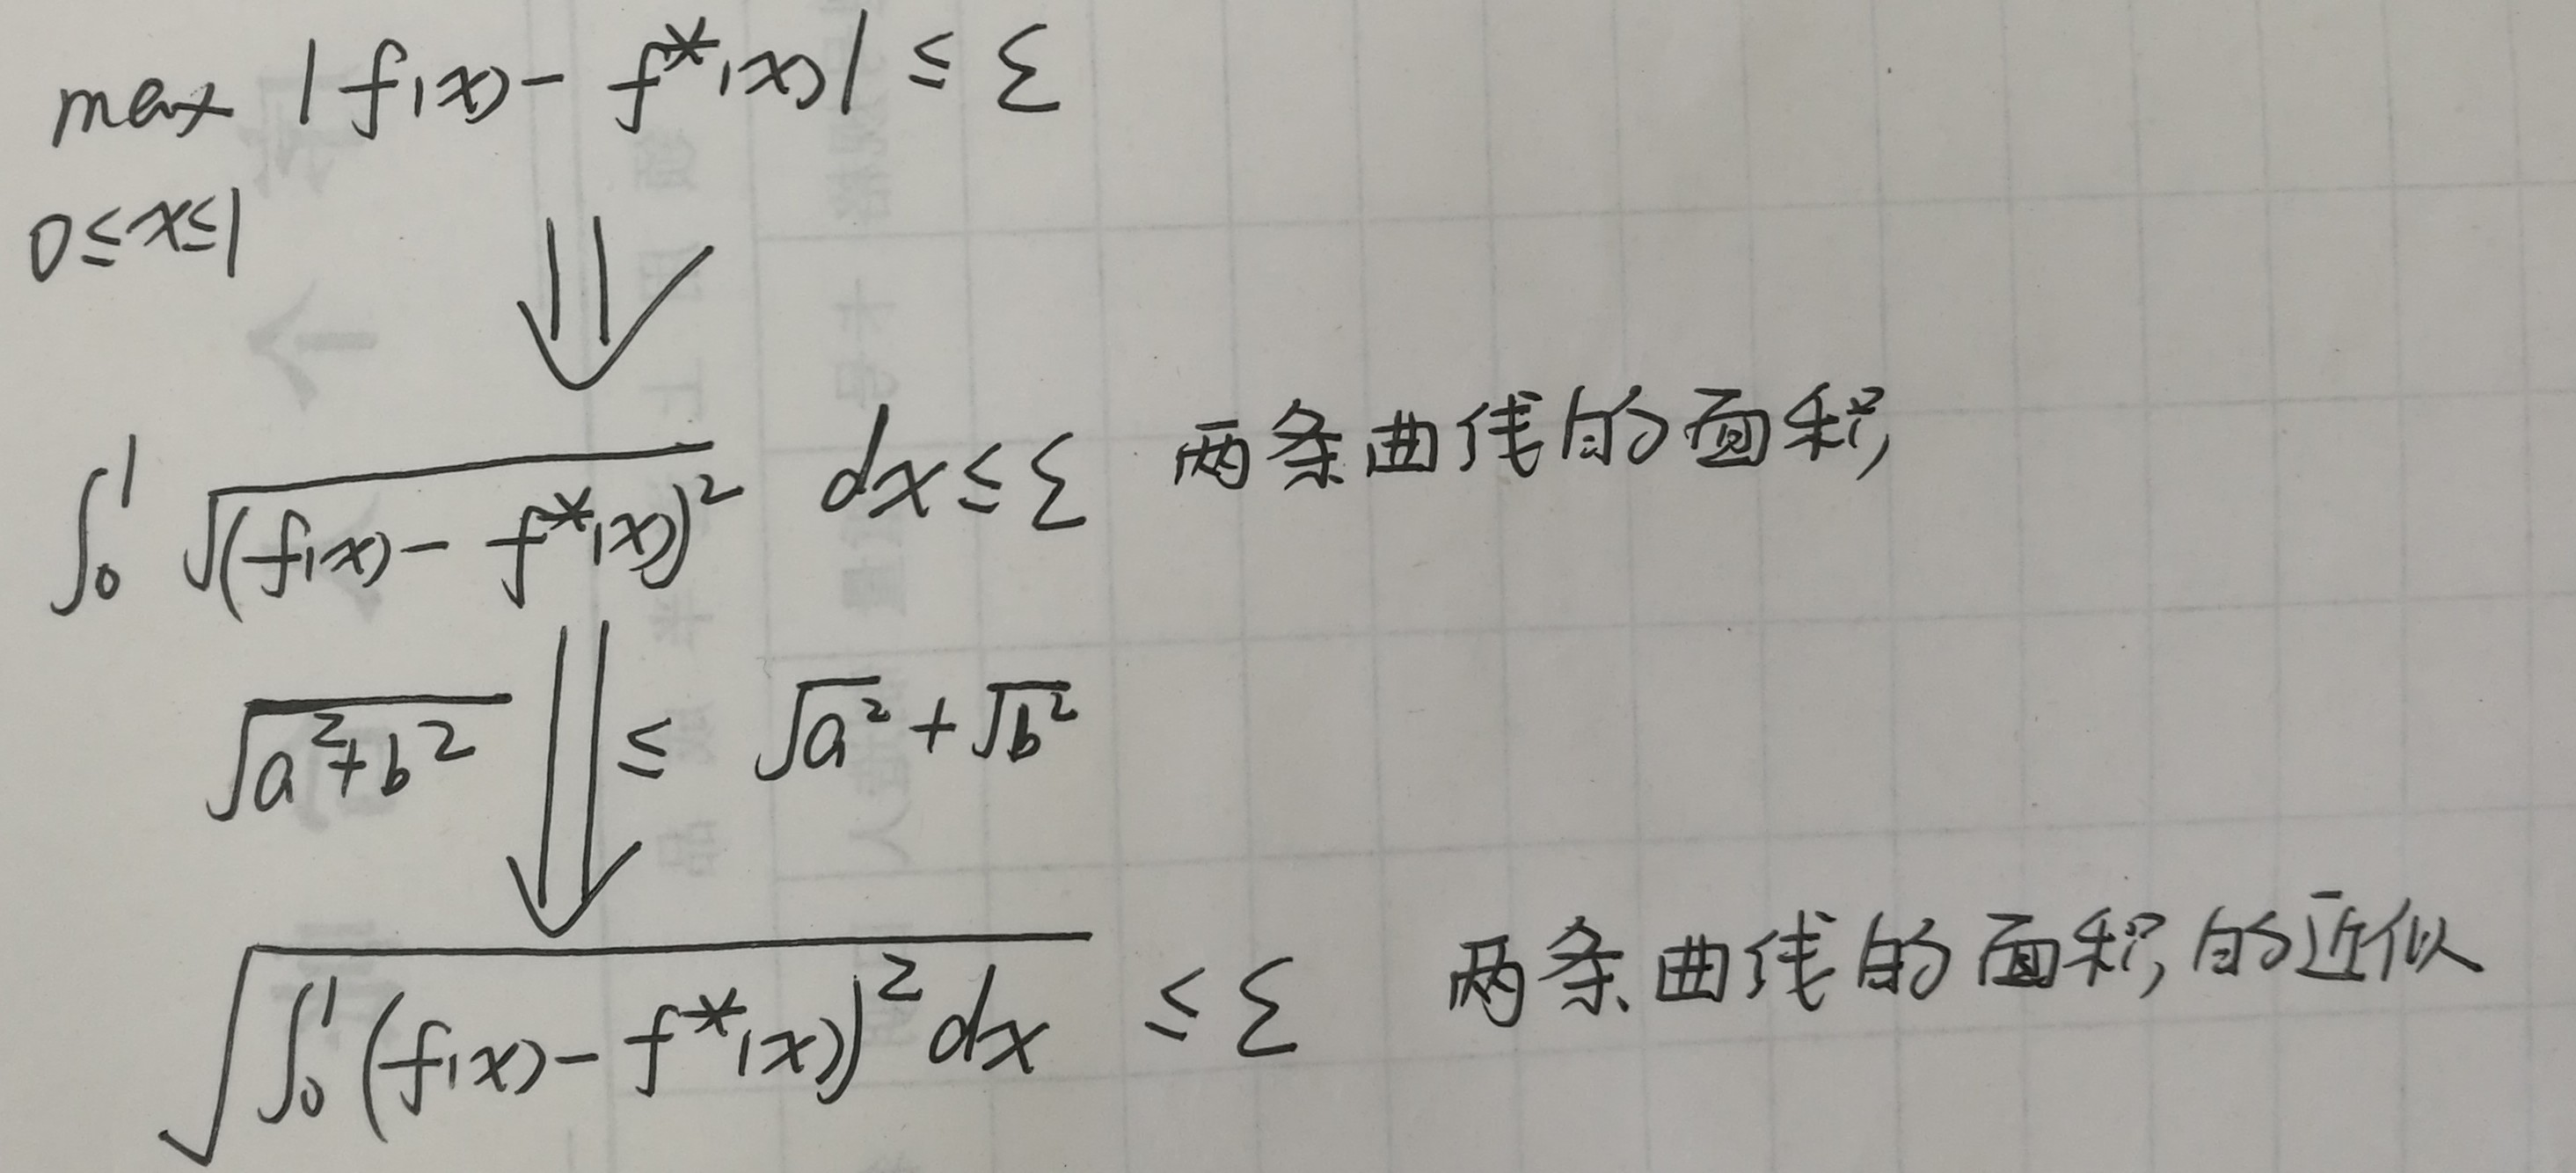 max |f(x) - f*(x)| ≤ ε
0≤x≤1
∫₀¹ √(f(x) - f*(x))² dx ≤ ε 两条曲线的面积
√a²+b² ≤ √a² + √b²
√∫₀¹ (f(x) - f*(x))² dx ≤ ε 两条曲线的面积的近似